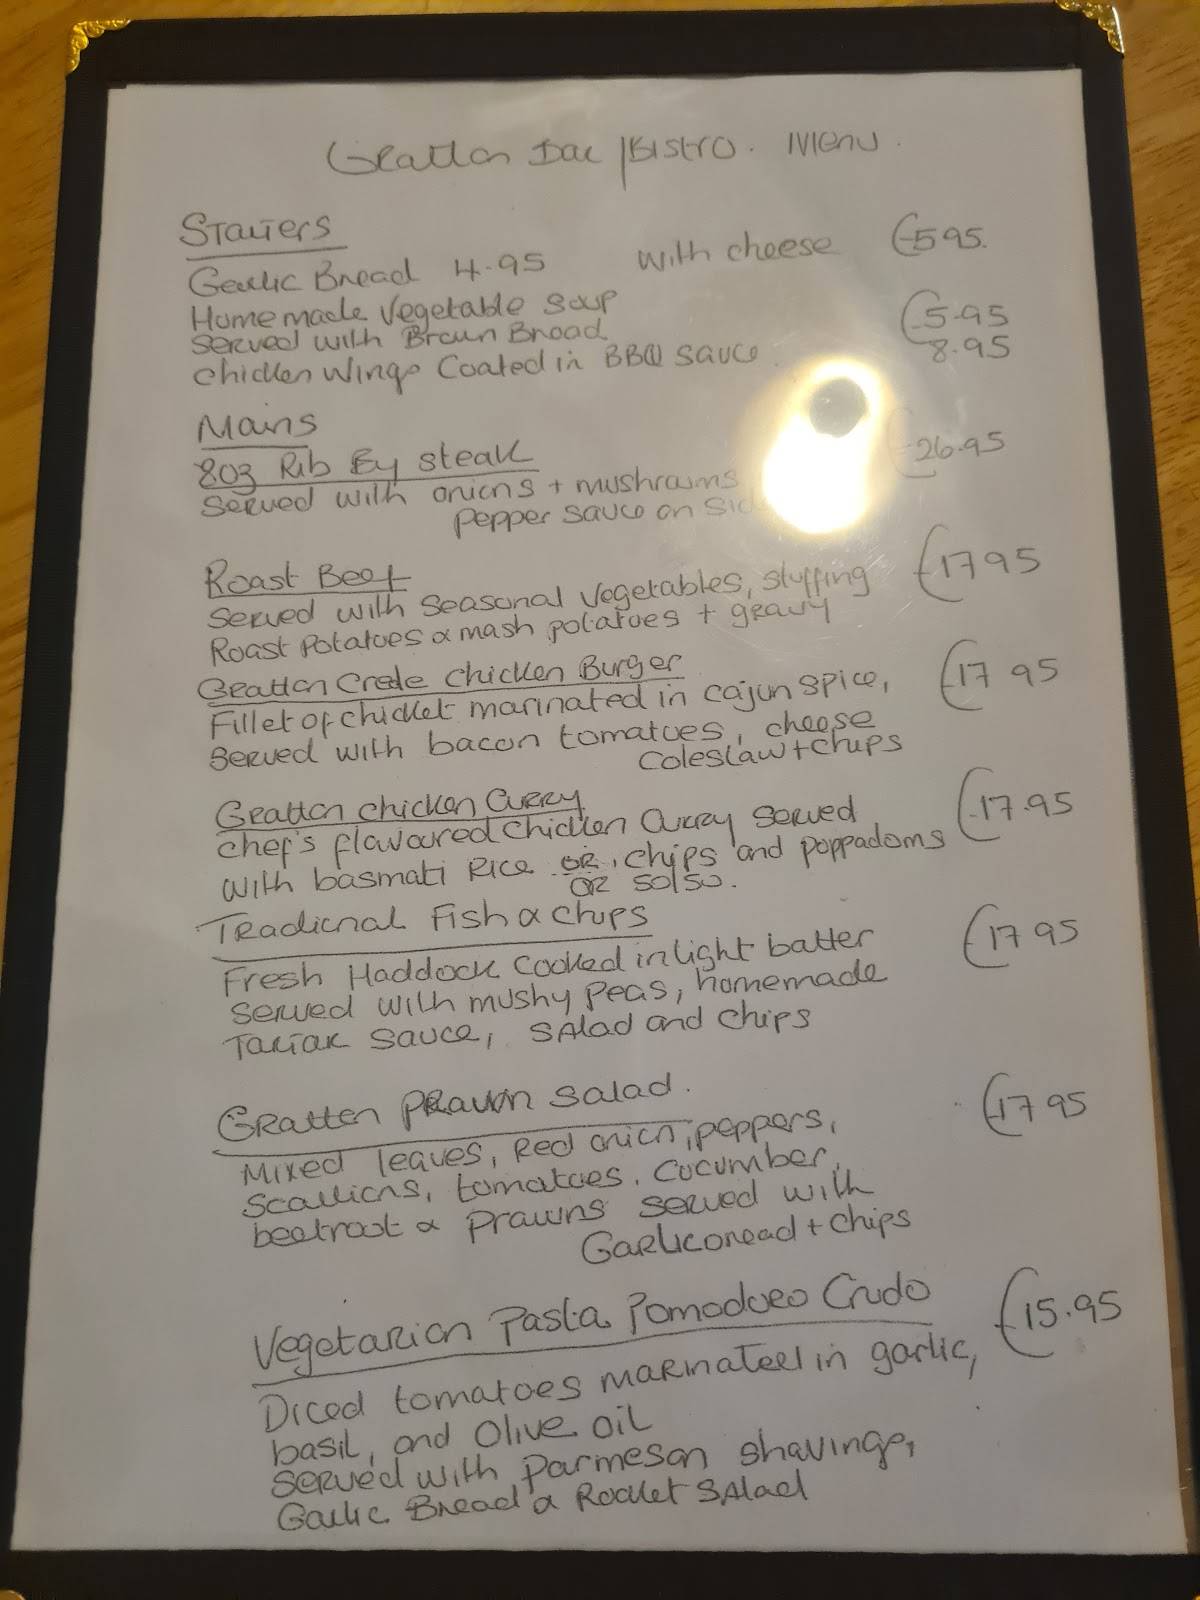 Grattan Bar /Bistro. Menu.
Starters
Garlic Bread 4.95 with cheese €5.95.
Homemade Vegetable Soup
Served with Brown Bread €5.95
Chicken Wings Coated in BBQ Sauce. 8.95
Mains
8oz Rib Ey Steak €26.95
Served with onions + mushrooms
Pepper sauce on Side
Roast Beef €17 95
Served with Seasonal Vegetables, stuffing
Roast Potatoes & mash potatoes + gravy
Grattan Creole Chicken Burger €17 95
Fillet of chicket marinated in cajun spice,
Served with bacon tomatoes, cheese
Coleslaw + chips
Grattan Chicken Curry €17.95
Chef's flavoured Chicken Curry Served
with basmati Rice OR, chips and poppadoms
OR 50/50.
Tradional Fish & Chips €17 95
Fresh Haddock Cooked in light batter
Served with mushy peas, homemade
Tartar sauce, Salad and chips
Gratten Prawn Salad. €17 95
Mixed leaves, Red onion, peppers,
Scallions, tomatoes, cucumber,
beetroot & Prawns Served with
Garlicbread + chips
Vegetarian Pasta Pomodoro Crudo €15.95
Diced tomatoes marinated in garlic,
basil, and Olive oil
Served with Parmesan shavings,
Garlic Bread & Rocket Salad